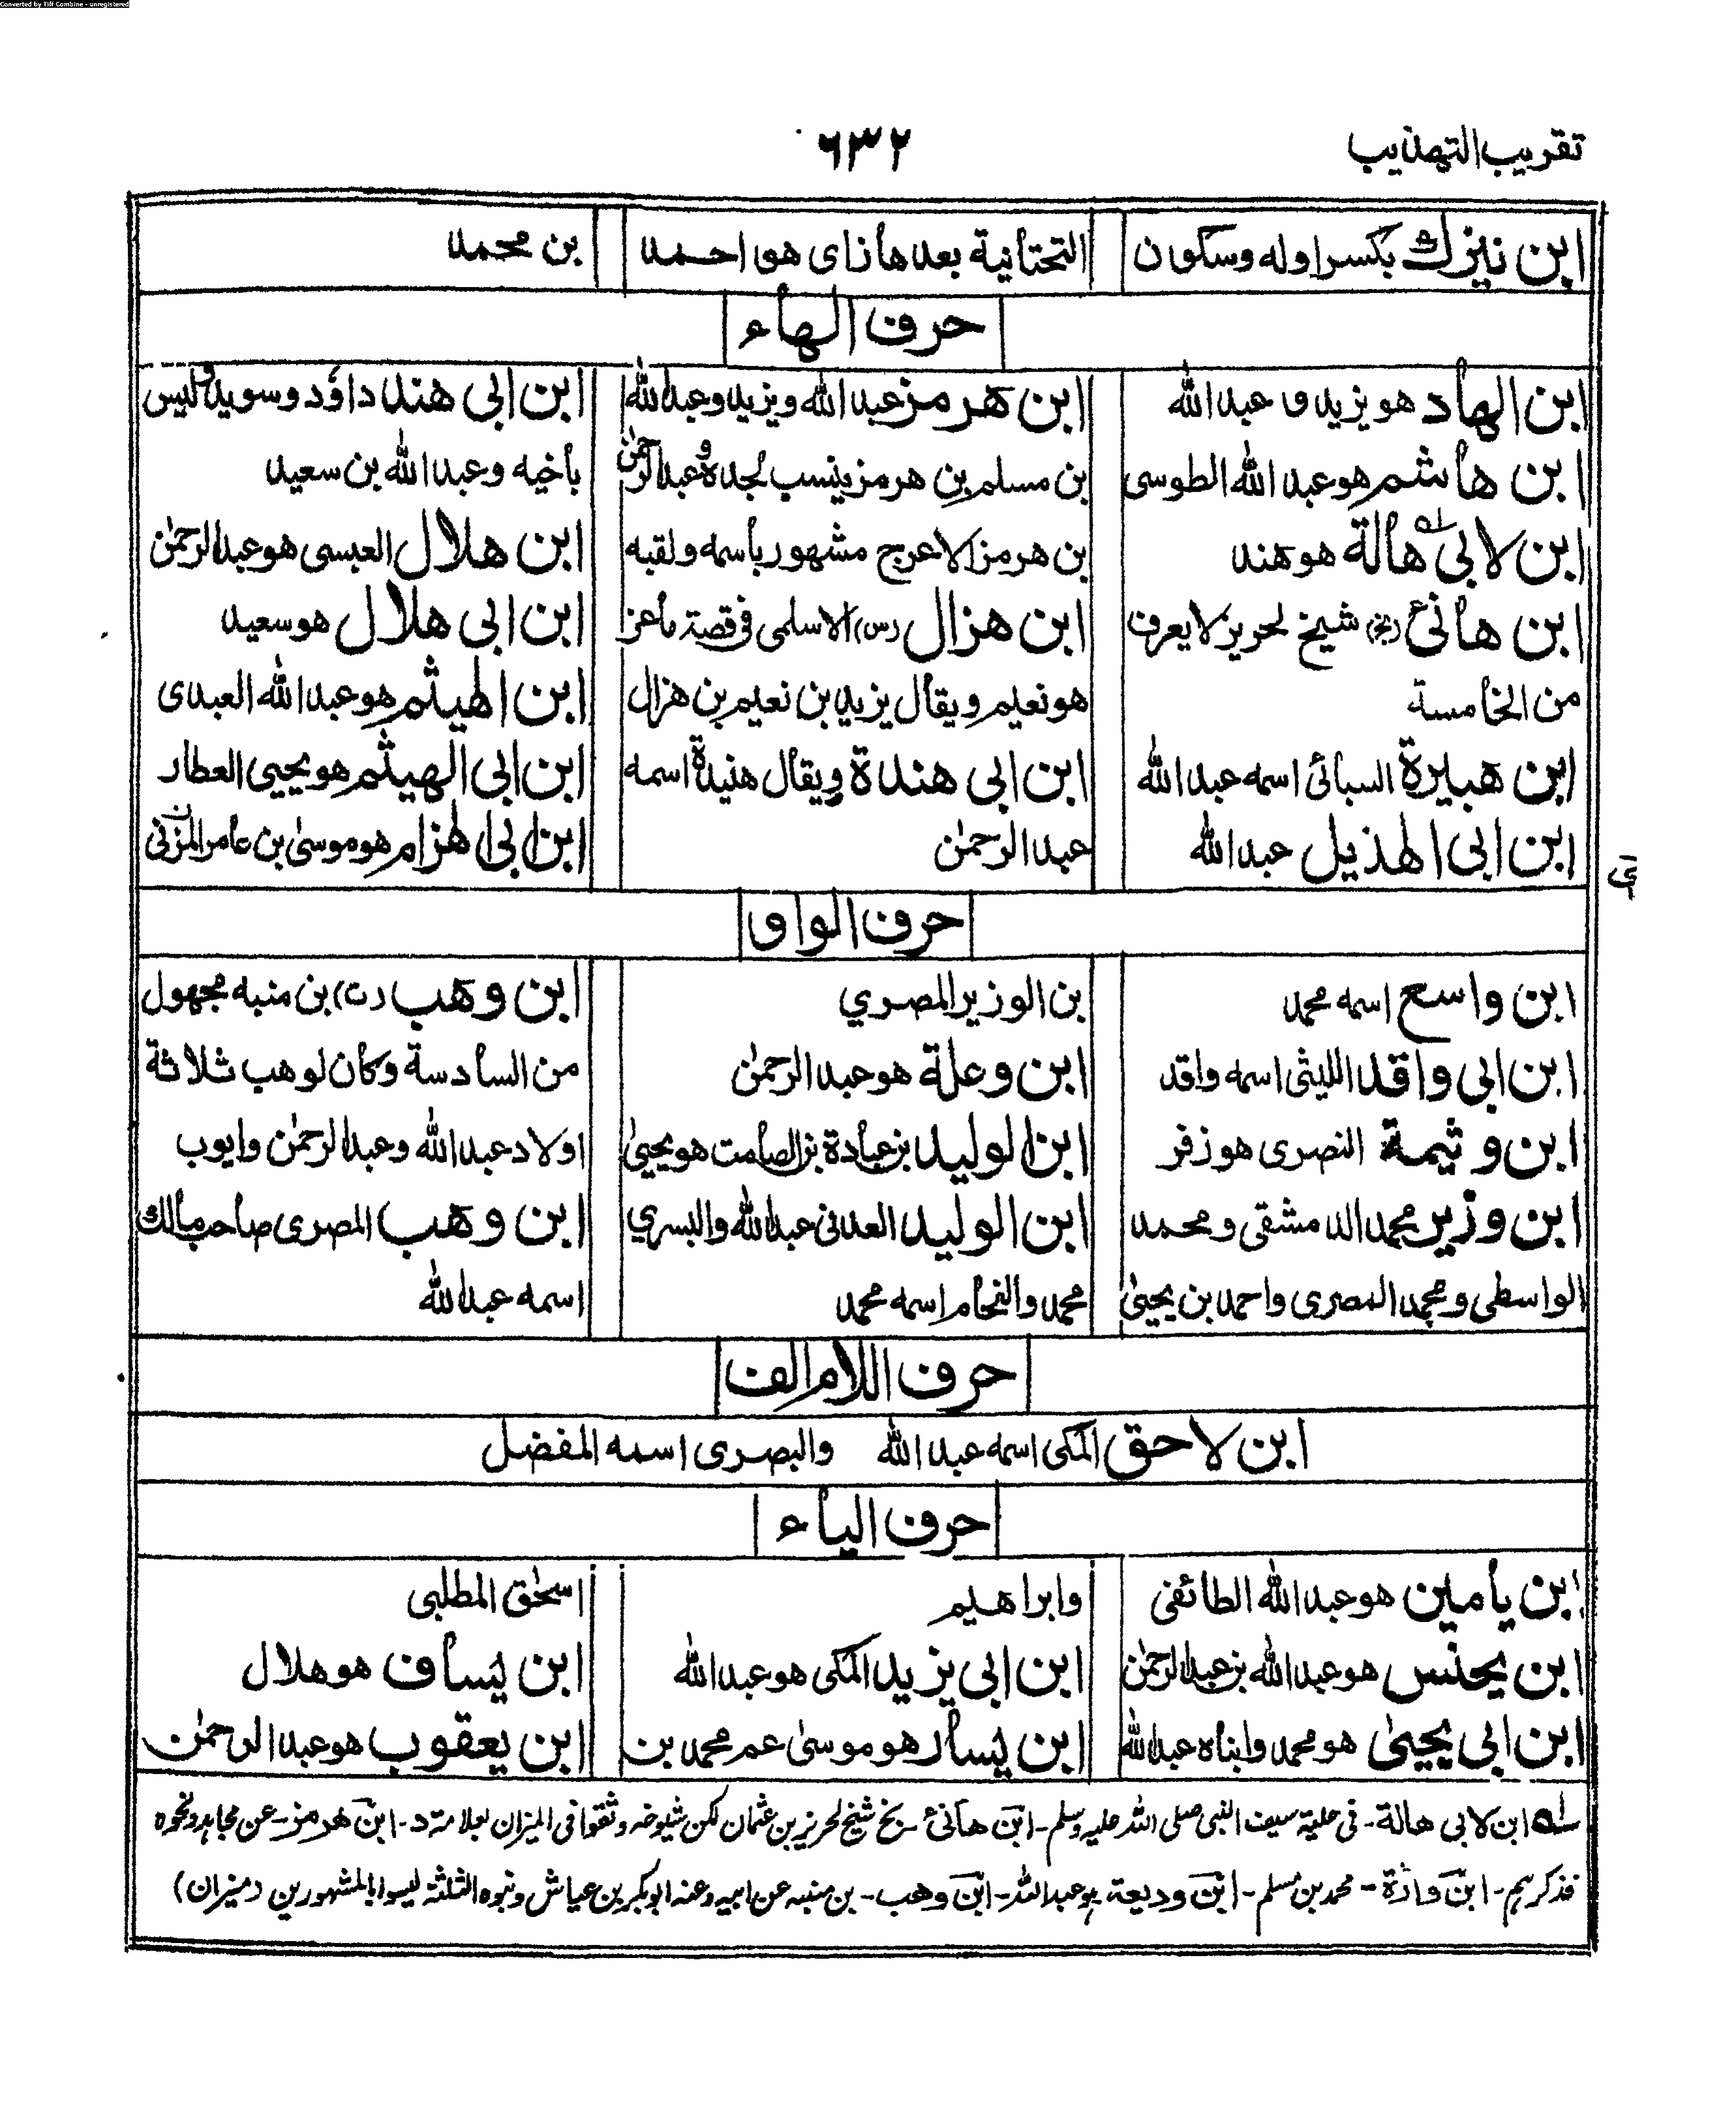 Converted by Tiff Combine - unregistered
تقريب التهذيب
٦٣٢
ابن نيزك بكسر اوله وسكون
التحتانية بعدها زاى هو احمد
بن محمد
حرف الهاء
ابن الهاد هو يزيد و عبد الله
ابن هاشم هو عبد الله الطوسى
ابن لابى هالة هو هند
ابن هانئ (بخ) شيخ لحريز لا يعرف
من الخامسة
ابن هبيرة السبائى اسمه عبد الله
ابن ابى الهذيل عبد الله
ابن هرمز عبد الله ويزيد وعبد الله
بن مسلم بن هرمز ينسب لجده وعبد الرحمٰن
بن هرمز الاعرج مشهور باسمه ولقبه
ابن هزال (س) الاسلمى فى قصة ماعز
هو نعيم ويقال يزيد بن نعيم بن هزال
ابن ابى هندة ويقال هنيدة اسمه
عبد الرحمٰن
ابن ابى هند داؤد وسويد وليس
باخيه وعبد الله بن سعيد
ابن هلال العبسى هو عبد الرحمٰن
ابن ابى هلال هو سعيد
ابن الهيثم هو عبد الله العبدى
ابن ابى الهيثم هو يحيى العطار
ابن ابى الهزام هو موسىٰ بن عامر المزنى
حرف الواو
ابن واسع اسمه محمد
ابن ابى واقد الليثى اسمه واقد
ابن وثيمة النصرى هو زفر
ابن وزير محمد الدمشقى ومحمد
الواسطى ومحمد المصرى واحمد بن يحيىٰ
بن الوزير المصري
ابن وعلة هو عبد الرحمٰن
ابن الوليد بن عبادة بن الصامت هو يحيىٰ
ابن الوليد العدنى عبد الله والبسري
محمد والفحام اسمه محمد
ابن وهب (ت) بن منبه مجهول
من السادسة وكان لوهب ثلاثة
اولاد عبد الله وعبد الرحمٰن وايوب
ابن وهب المصرى صاحب مالك
اسمه عبد الله
حرف اللام الف
ابن لاحق المكى اسمه عبد الله والبصرى اسمه المفضل
حرف الياء
ابن يامين هو عبد الله الطائفى
ابن يحنس هو عبد الله بن عبد الرحمٰن
ابن ابى يحيىٰ هو محمد وابناه عبد الله
وابراهيم
ابن ابى يزيد المكى هو عبد الله
ابن يسار هو موسىٰ عم محمد بن
اسحٰق المطلبى
ابن يساف هو هلال
ابن يعقوب هو عبد الرحمٰن
له ابن لابى هالة- فى حلية سيف النبى صلى الله عليه وسلم- ابن هانئ- بخ شيخ لحريز بن عثمان لكن شيوخه وثقوا فى الميزان بعلامة د- ابن هرمز- عن مجاهد ونحوه
فذكرهم- ابن وارة- محمد بن مسلم- ابن وديعة هو عبد الله- ابن وهب- بن منبه عن ابيه وعنه ابو بكر بن عياش ونبوه الثلثة ليسوا بالمشهورين (ميزان)